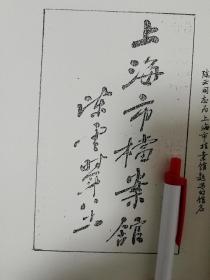 上海市档案馆
陈云题 八六
陈云同志为上海市档案馆题写的馆名